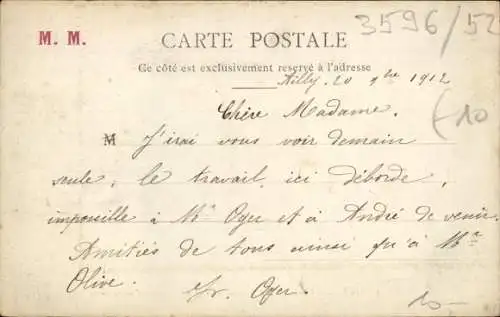 3596/52
M. M.
CARTE POSTALE
Ce côté est exclusivement reservé à l'adresse
Ailly. 20 9bre 1912
Chère Madame.
(10
M J'irai vous voir demain
seule, le travail ici déborde,
impossible à Mr Oyer et à André de venir
Amitiés de tous ainsi qu'à Mr
Olive. Oyer.
10.-